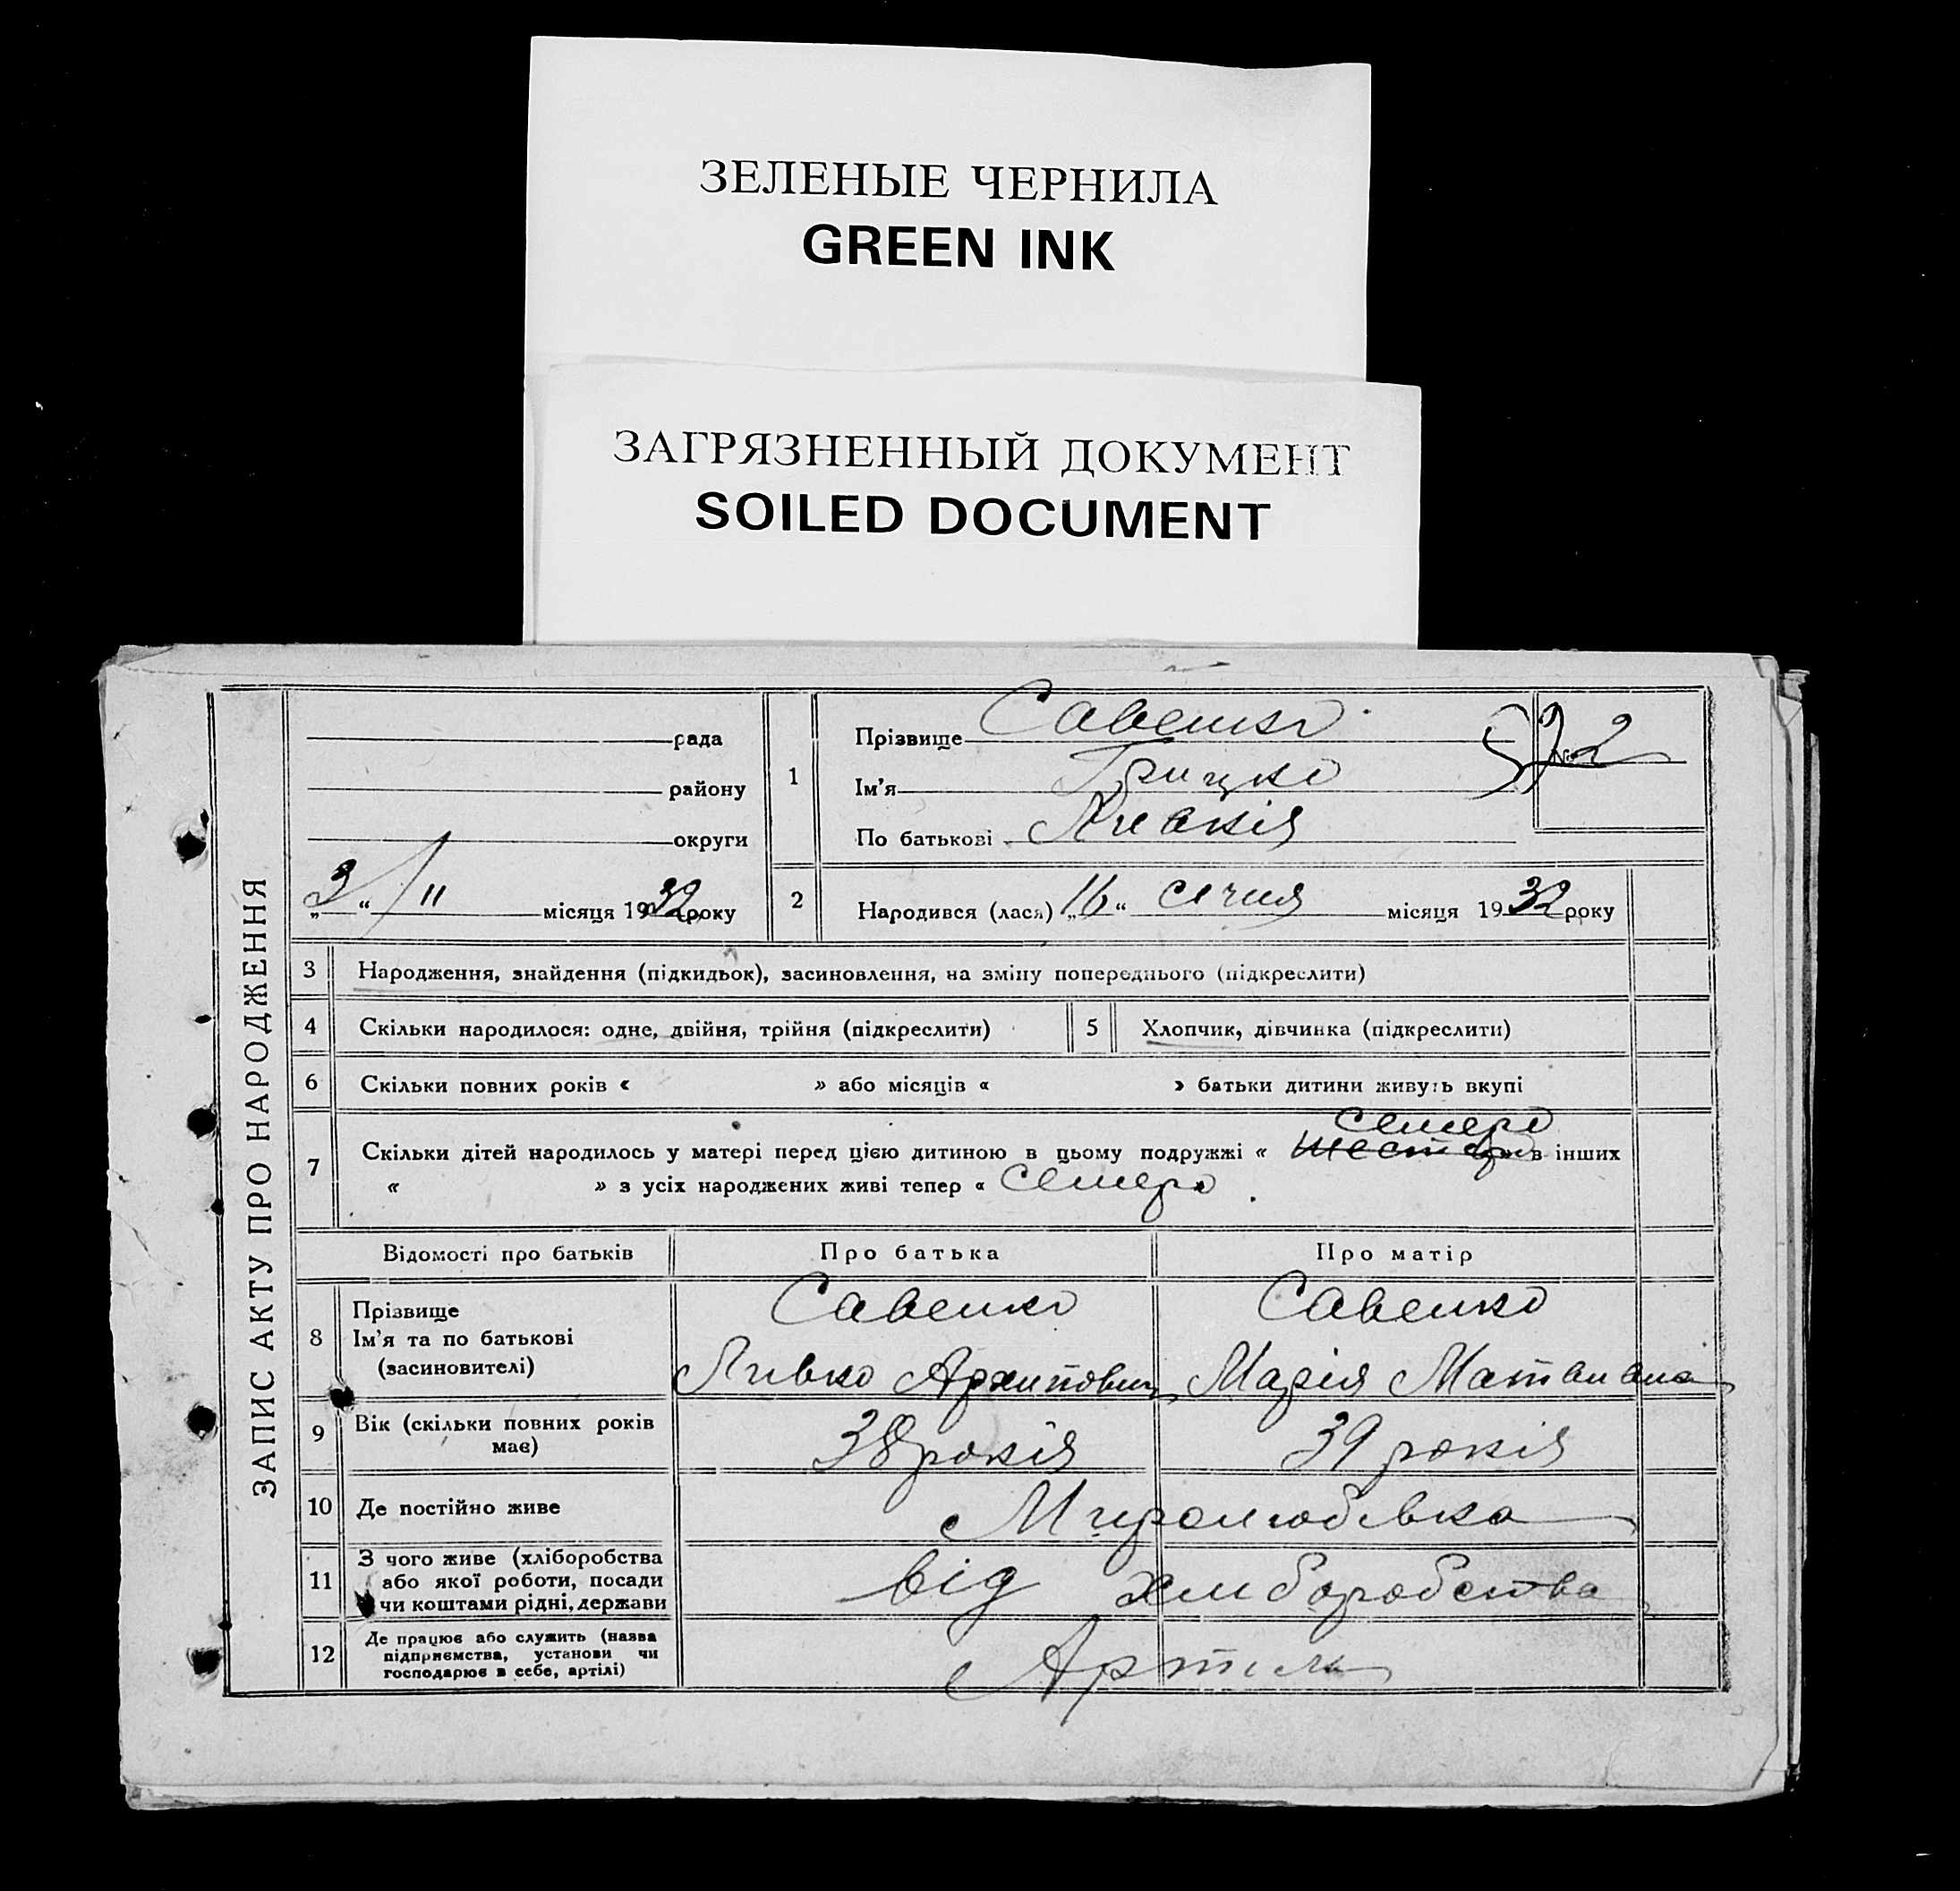 ЗЕЛЕНЫЕ ЧЕРНИЛА
GREEN INK
ЗАГРЯЗНЕННЫЙ ДОКУМЕНТ
SOILED DOCUMENT
ЗАПИС АКТУ ПРО НАРОДЖЕННЯ
рада
району
округи
„3“ /II місяця 1932 року
1
Прізвище Савенко
Ім'я Грицко
По батькові
№ 2
2
Народився (лася) „16“ січня місяця 1932 року
3 Народження, знайдення (підкидьок), засиновлення, на зміну попереднього (підкреслити)
4 Скільки народилося: одне, двійня, трійня (підкреслити)
5 Хлопчик, дівчинка (підкреслити)
6 Скільки повних років « » або місяців « » батьки дитини живуть вкупі
семеро
7 Скільки дітей народилось у матері перед цією дитиною в цьому подружжі « шестеро в інших
« » з усіх народжених живі тепер « Семеро
Відомості про батьків Про батька Про матір
8 Прізвище Савенко Савенко
Ім'я та по батькові Архипович Марія
(засиновителі)
9 Вік (скільки повних років має) 38 років 39 років
10 Де постійно живе Миролюбівка
11 З чого живе (хліборобства
або якої роботи, посади
чи коштами рідні, держави
від хлиборобства
12 Де працює або служить (назва
підприємства, установи чи
господарює в себе, артілі)
Артиль